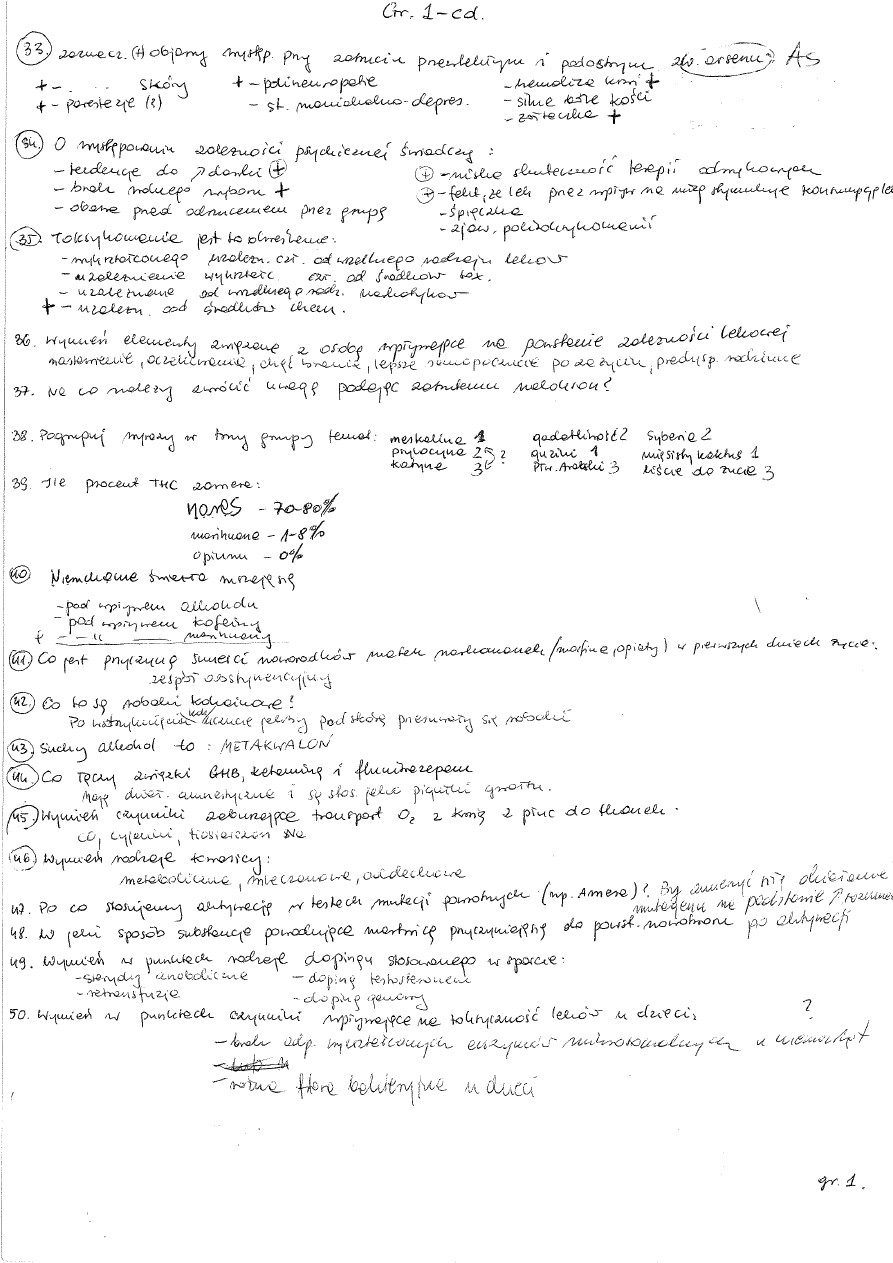 Gr. 1-cd.
33. zaznacz (+) objawy występ. przy zatruciu przewlekłym i podostrym zw. arsenu: As
+ - . . . skóry + - polineuropatie - hemoliza krwi +
+ - parestezje (?) - st. maniakalno-depres. - silne bóle kości
- żółtaczka +
34. O występowaniu zależności psychicznej świadczy:
- tendencje do ↑ dawki + + - niska skuteczność terapii odwykowych
- brak wolnego wyboru + + - fakt, że lek przez wpływ na mózg stymuluje
- obawa przed odrzuceniem przez grupę - śpiączka
- zjaw. politoksykomanii
35. Toksykomania jest to określenie:
- uzależn. czł. od wszelkiego rodzaju leków
- uzależnienie wykształc. czł. od środków tox.
- uzależnienie od wszelkiego rodz. narkotyków
+ - uzależn. od środków chem.
36. Wymień elementy związane z osobą wpływające na powstanie zależności lekowej
nastawienie, oczekiwanie, chęć brania, lepsze samopoczucie po zażyciu, predysp. rodzinne
37. Na co należy zwrócić uwagę podając zatrutemu nalokson?
38. Pogrupuj wyrazy w trzy grupy temat: meskalina 1 gadatliwość 2 Syberia 2
psylocyna 2 ? guziki 1 mięsisty kaktus 1
katyna 3 Płw. Arabski 3 liście do żucia 3
39. Ile procent THC zawiera:
- 70-80%
marihuana - 1-8%
opium - 0%
40 Niechciane śmierci
- pod wpływem alkoholu
- pod wpływem kofeiny
+ - - 11 - marihuany
41. Co jest przyczyną śmierci noworodków matek narkomanek (morfina, opiaty) w pierwszych dniach życia:
zespół abstynencyjny
42. Co to są robaki kokainowe?
Po uczucie jakby pod skórą przesuwały się robaki
43. Suchy alkohol to: METAKWALON
44. Co łączy związki GHB, ketaminę i flunitrazepam
Mają dział. amnestyczne i są stos. jako pigułki gwałtu.
45. Wymień czynniki zaburzające transport O2 z krwią z płuc do tkanek.
CO, cyjanki, tiosiarczan Na
46. Wymień rodzaje kwasicy:
metaboliczna, mleczanowa, oddechowa
47. Po co stosujemy aktywację w testach mutacji powrotnych (np. Amesa)? By
48. W jaki sposób substancje powodujące martwicę przyczyniają się do powst. nowotworu po aktywacji
49. Wymień w punktach rodzaje dopingu stosowanego w sporcie:
- sterydy anaboliczne - doping testosteronem
- retransfuzja - doping genowy
50. Wymień w punktach czynniki wpływające na toksyczność leków u dzieci: ?
- brak odp. wykształconych enzymów mikrosomalnych u niemowląt
- różna flora bakteryjna u dzieci
gr. 1.